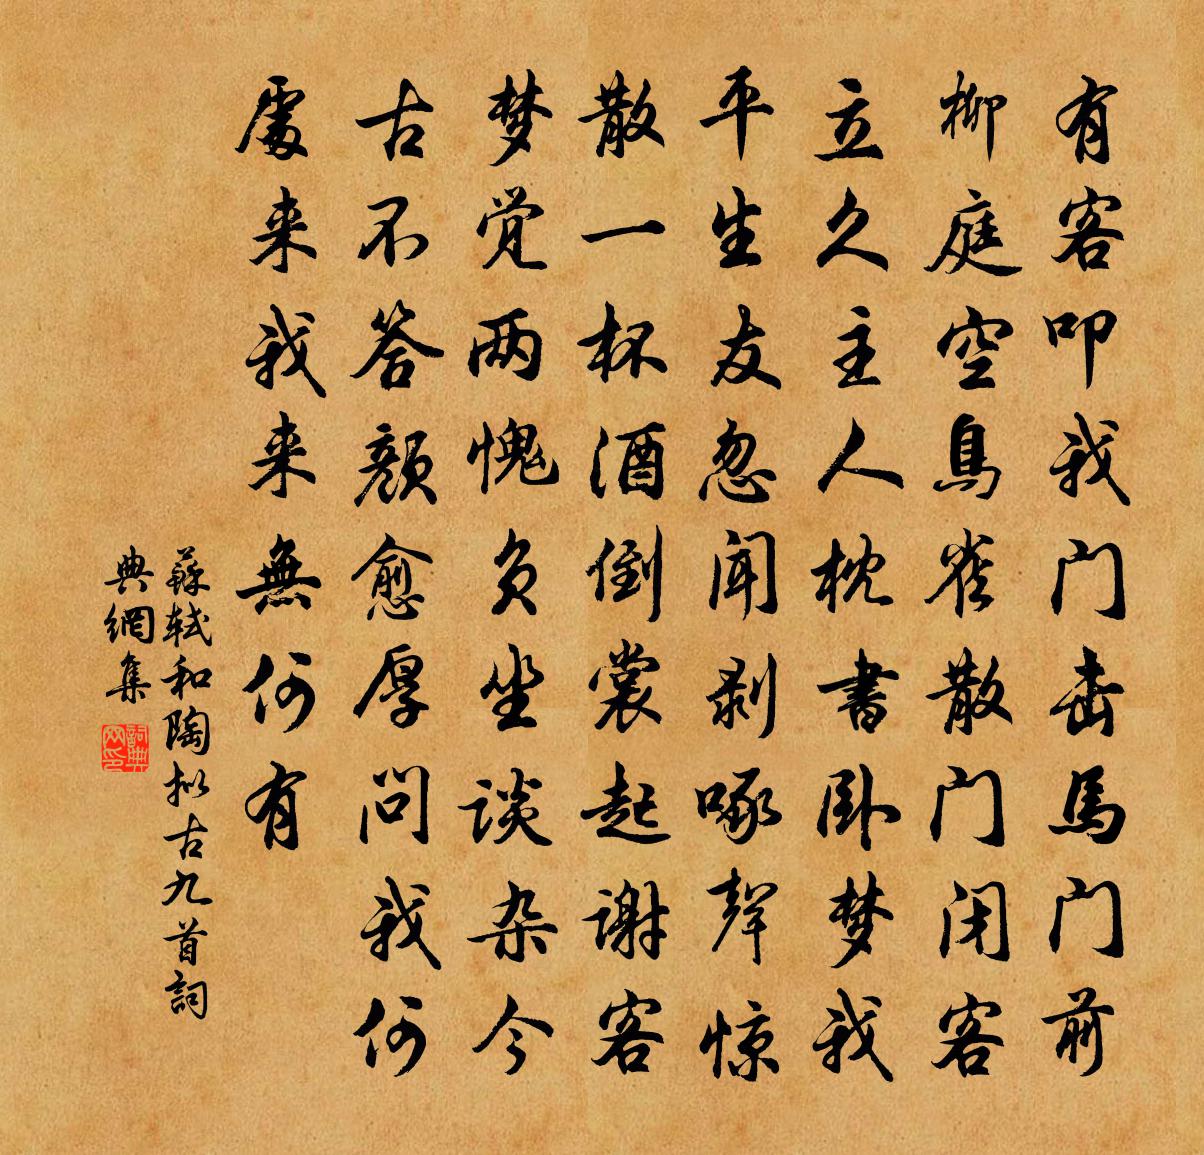 有客叩我门击馬门前
柳庭空鳥雀散门闭客
立久主人枕書卧梦我
平生友忽闻剥啄聲惊
散一杯酒倒裳起谢客
梦觉两愧负坐谈杂今
古不答颜愈厚问我何
處来我来無何有
蘇軾和陶拟古九首詞
典網集
詞典网印